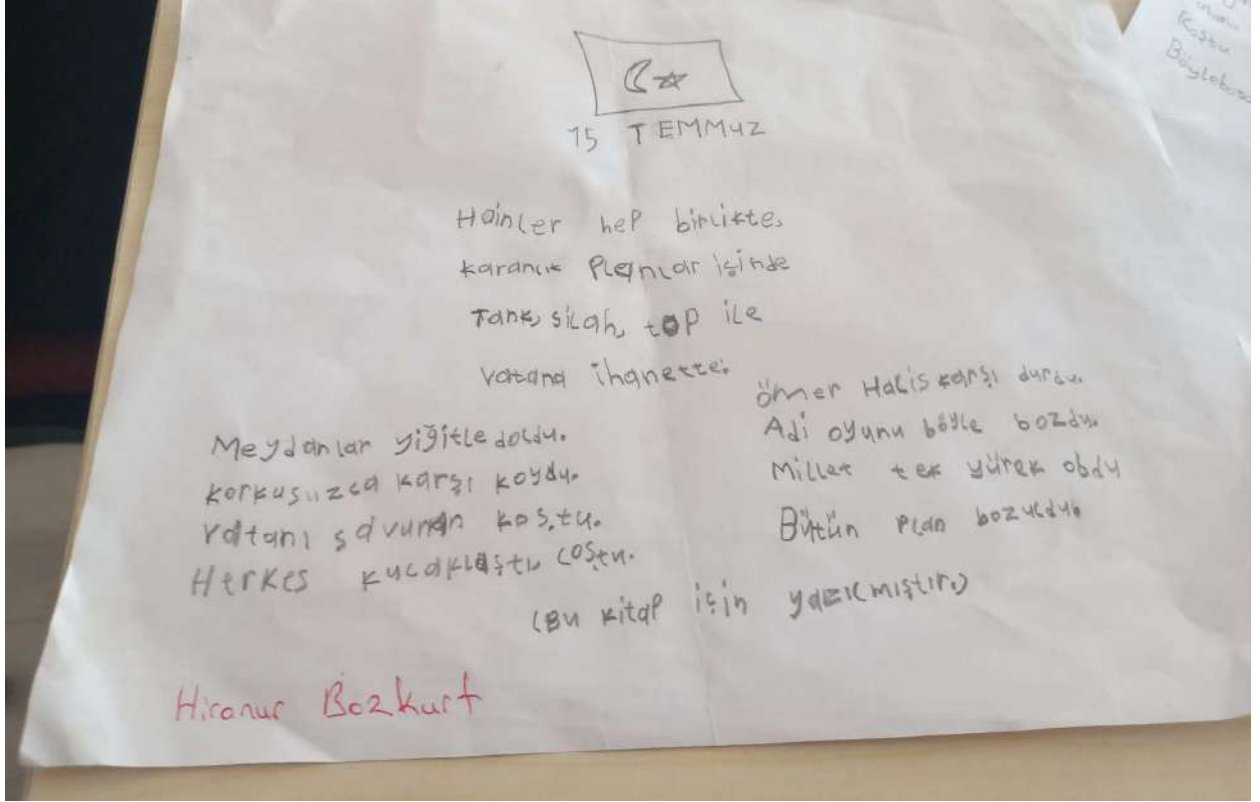 15 TEMMUZ
Hainler hep birlikte,
karanlık Planlar içinde
Tank, silah, top ile
vatana ihanette.
Meydanlar yiğitle doldu.
korkusuzca karşı koydu.
vatanı savunan koştu.
Herkes kucaklaştı, coştu.
Ömer Halis karşı durdu.
Adi oyunu böyle bozdu.
Millet tek yürek obdu
Bütün Plan bozuldu.
(Bu kitap için yazılmıştır.)
Hiranur Bozkurt
Koştu